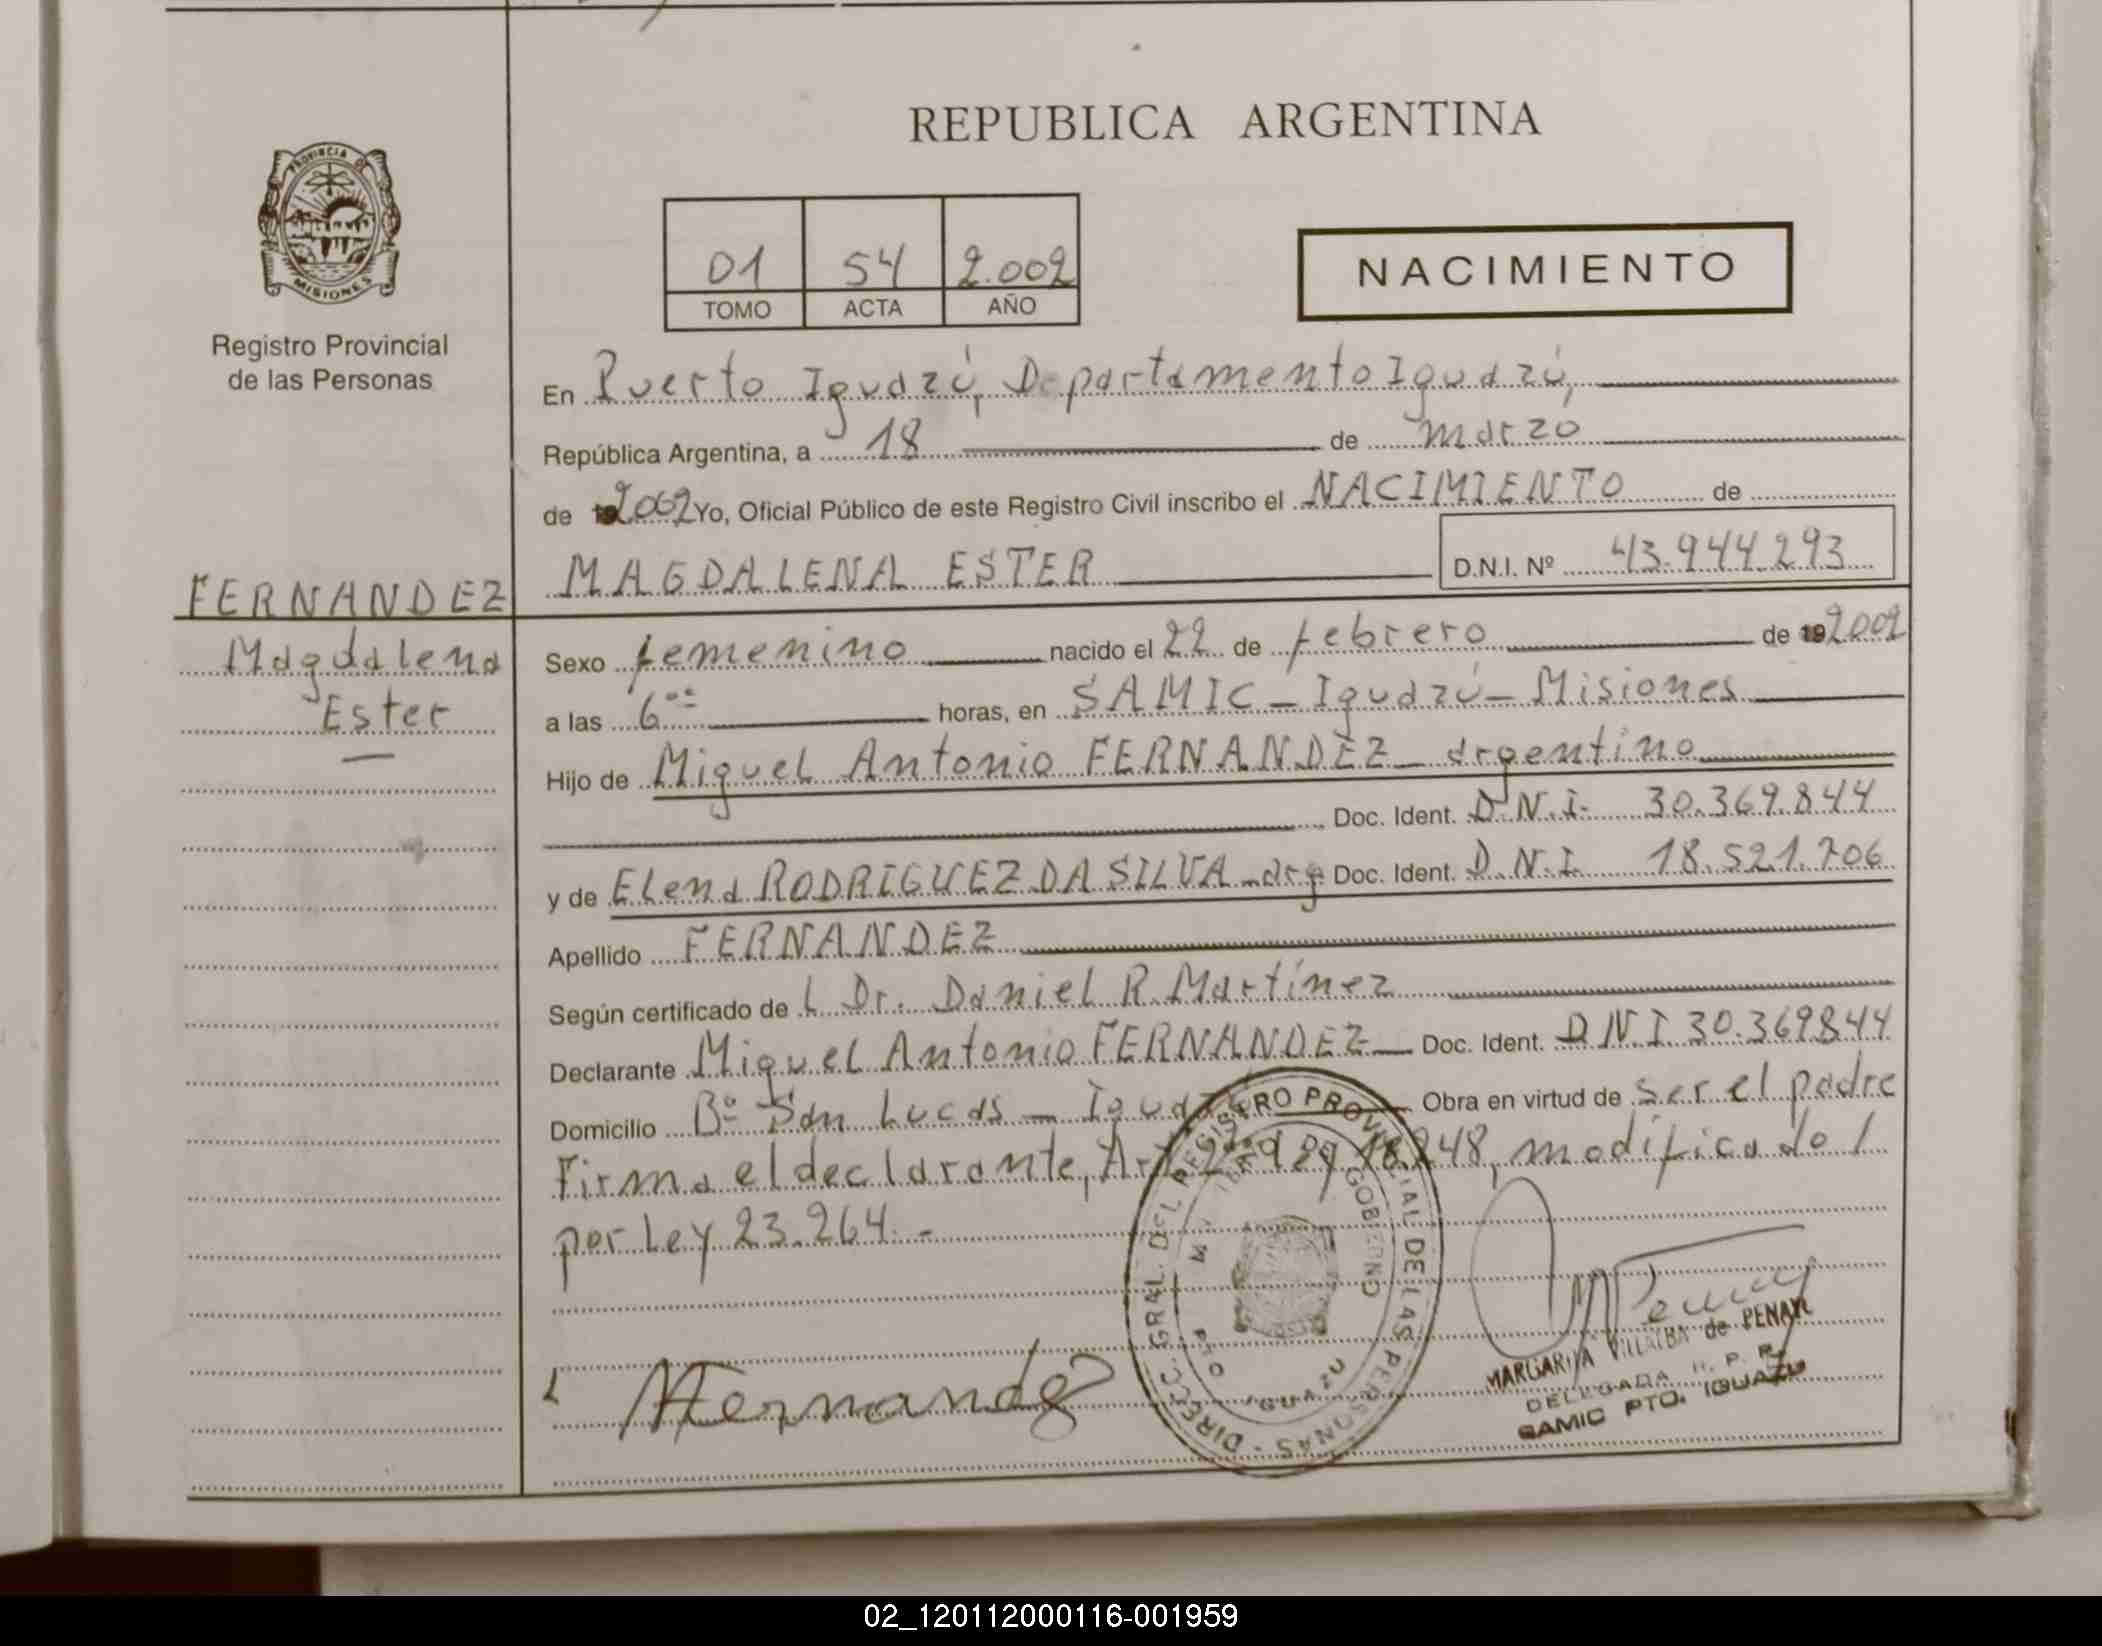 REPUBLICA ARGENTINA
PROVINCIA DE
MISIONES
Registro Provincial
de las Personas
01 54 2.002
TOMO ACTA AÑO
NACIMIENTO
En Puerto Iguazú, Departamento Iguazú,
República Argentina, a 18 de marzo
de 2002 Yo, Oficial Público de este Registro Civil inscribo el NACIMIENTO de
MAGDALENA ESTER D.N.I. Nº 43.944.293
FERNANDEZ
Magdalena
Ester
Sexo femenino nacido el 22 de febrero de 19 2002
a las 6 horas, en SAMIC - Iguazú - Misiones
Hijo de Miguel Antonio FERNANDEZ - argentino
Doc. Ident. D.N.I. 30.369.844
y de Elena RODRIGUEZ DA SILVA - arg Doc. Ident. D.N.I 18.521.706
Apellido FERNANDEZ
Según certificado de l Dr. Daniel R. Martínez
Declarante Miguel Antonio FERNANDEZ Doc. Ident. D.N.I 30.369844
Domicilio Bº San Lucas - Iguazú Obra en virtud de ser el padre
Firma el declarante, Art. 18.248, modificado
por Ley 23.264.-
Fernandez
DIRECC. GRAL. DEL REGISTRO PROVINCIAL DE LAS PERSONAS
GOBIERNO
MARGARITA VILLALBA de PENAYO
DELEGADA R. P. P.
SAMIC PTO. IGUAZU
02_120112000116-001959